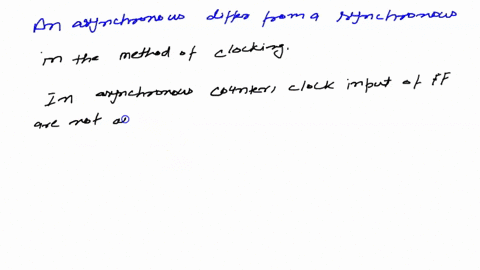 An asynchronous differ from a synchronous
in the method of clocking.
In asynchronous counter, clock input of FF
are not a